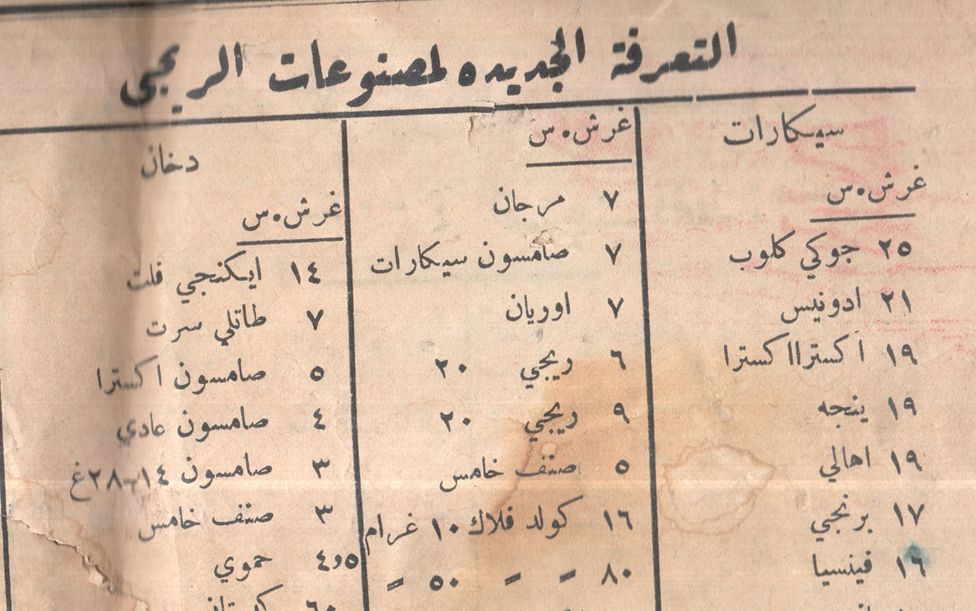 التعرفة الجديده لمصنوعات الريجي
سيكارات
غرش.س
٢٥ جوكي كلوب
٢١ ادونيس
١٩ اكسترااكسترا
١٩ ينجه
١٩ اهالي
١٧ برنجي
١٦ فينسيا
غرش.س
٧ مرجان
٧ صامسون سيكارات
٧ اوريان
٦ ريجي ٢٠
٩ ريجي ٢٠
٥ صنف خامس
١٦ كولد فلاك ١٠ غرام
٨٠ = = ٥٠ =
دخان
غرش.س
١٤ ايكنجي قلت
٧ طاتلي سرت
٥ صامسون اكسترا
٤ صامسون عادي
٣ صامسون ١٤-٢٨غ
٣ صنف خامس
٤و٥ حموي